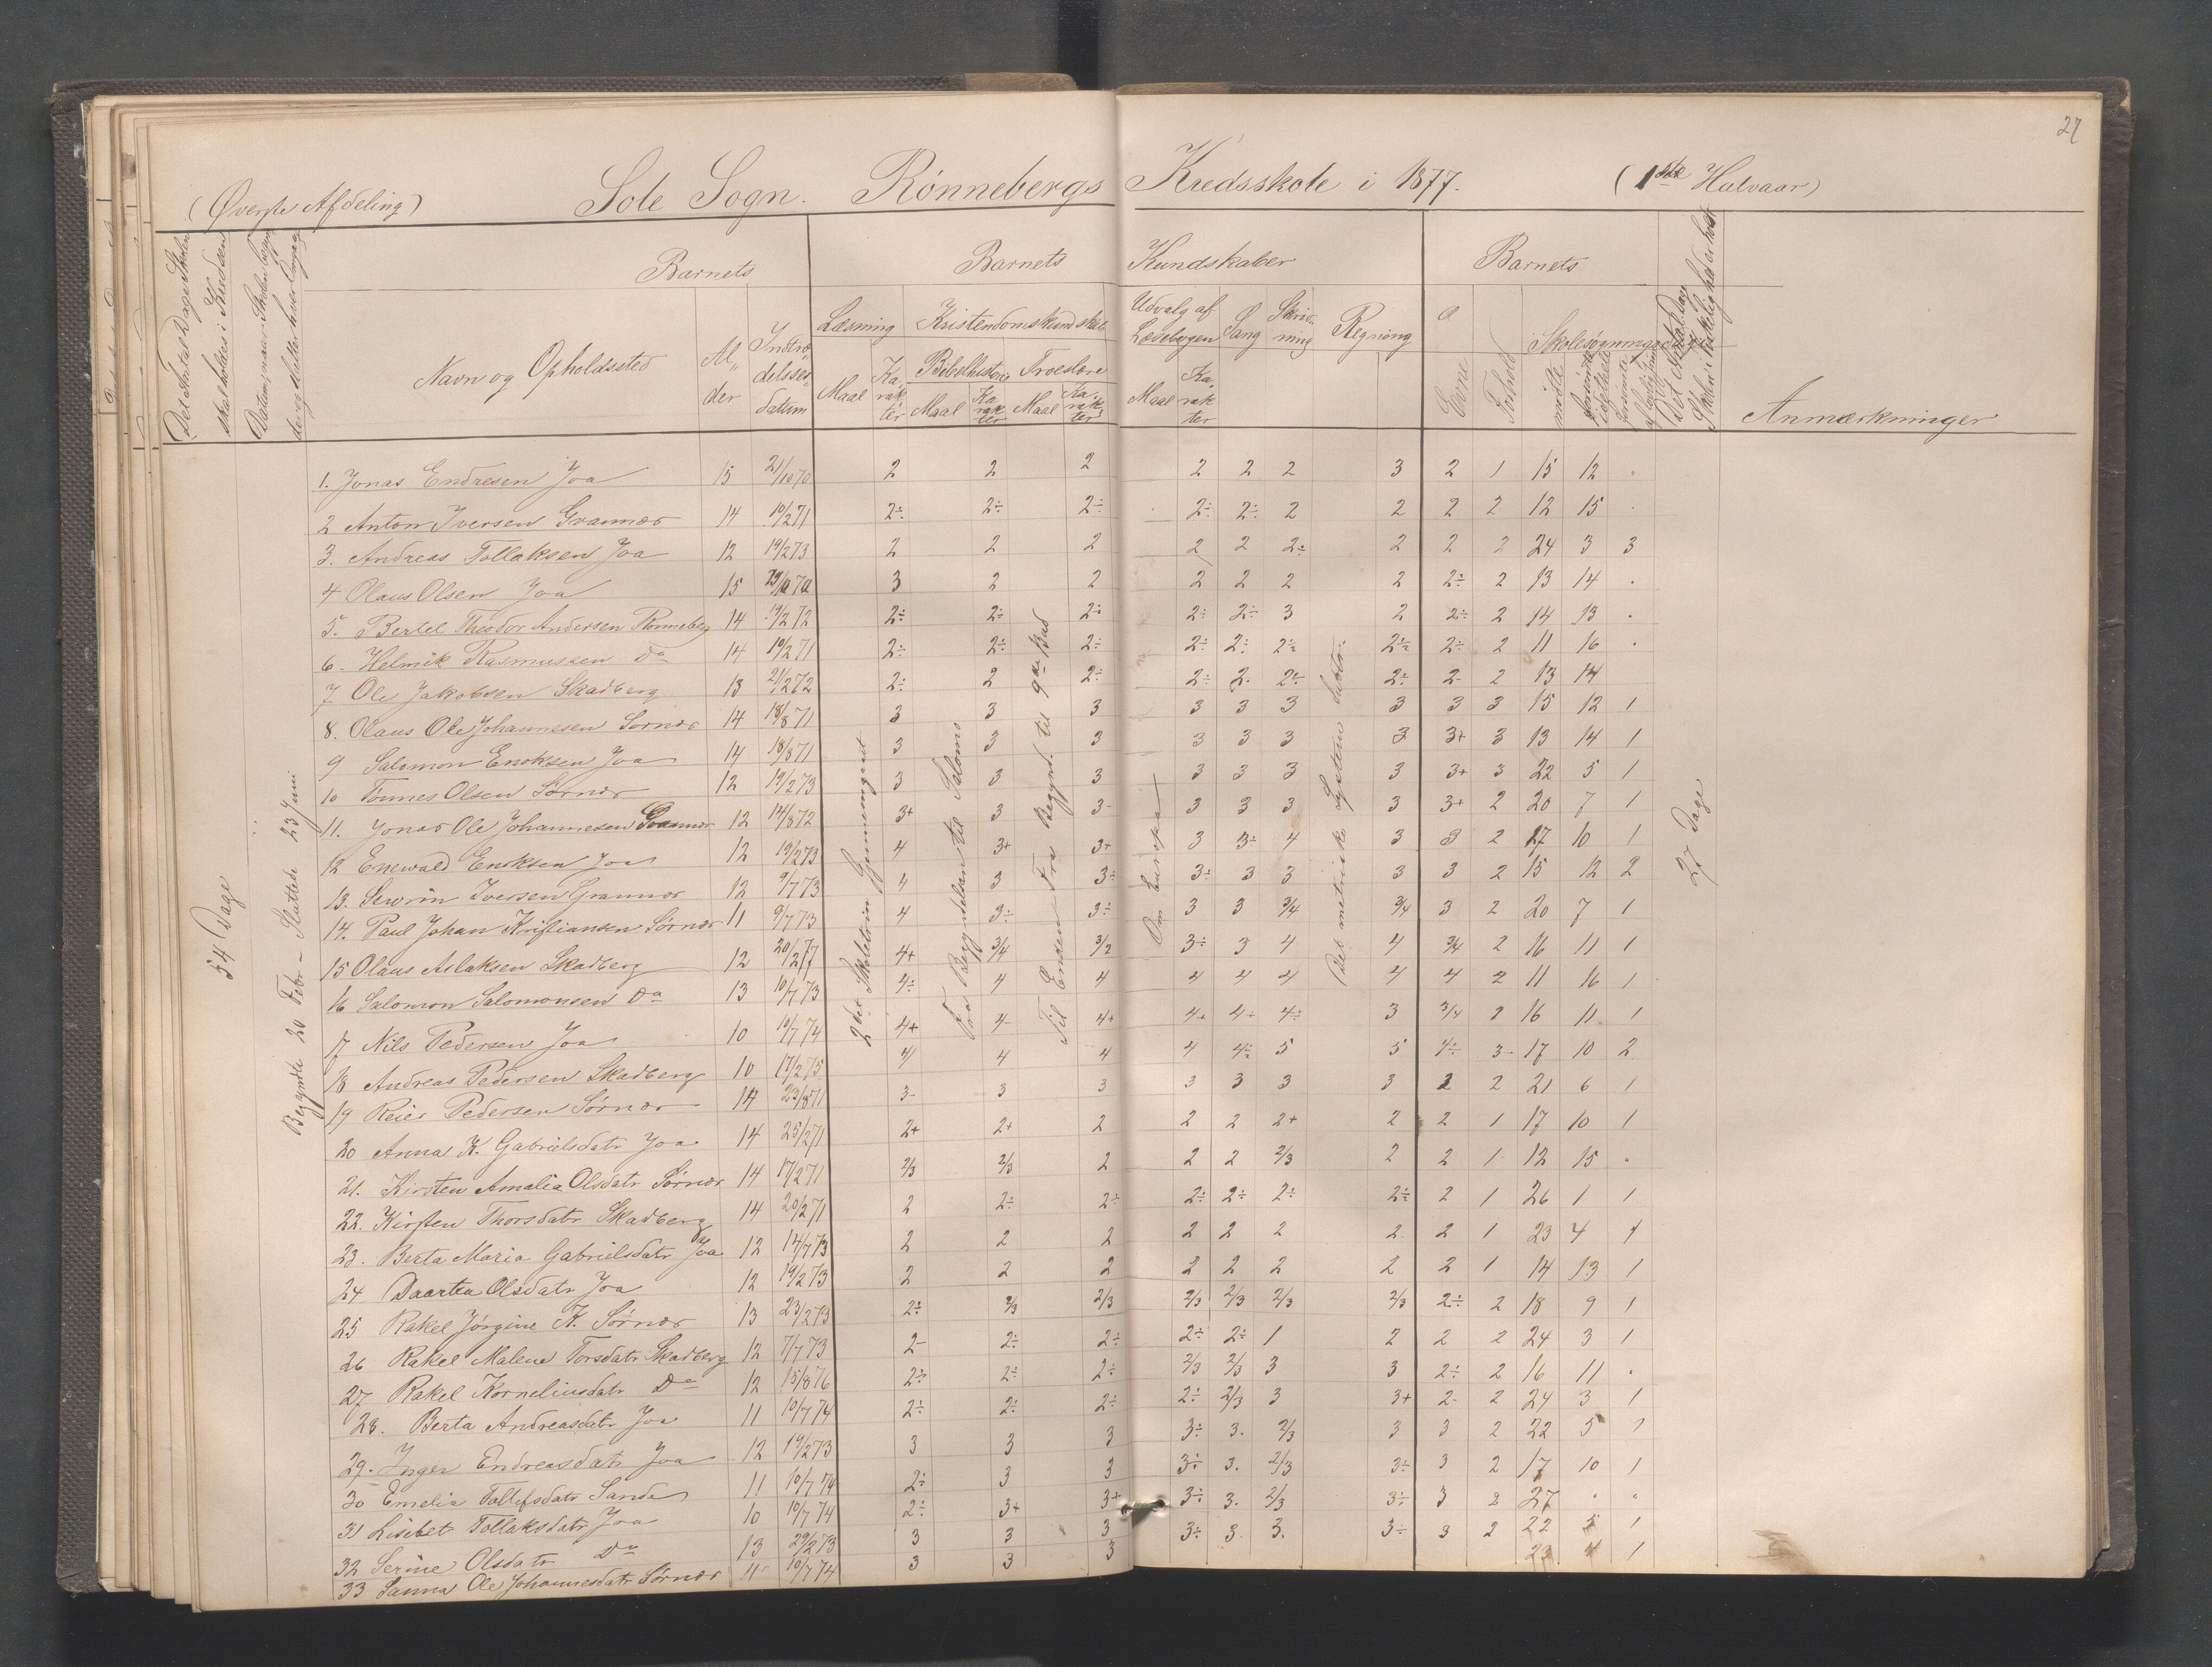 27
(Øverste Afdeling) Sole Sogn. Rønnebergs Kredsskole i 1877. (1ste Halvaar)
Det Antal Dage Skolen skal holdes i Kredsen
Datum, naar Skolen begyndte og slutter hver Omgang
Barnets Barnets Kundskaber Barnets
Navn og Opholdssted Alder Indtrædelsesdatum
Læsning Kristendomskundskab Udvalg af Læsebogen Sang Skrivning Regning Evne Forhold Skolesøgningsdage
Bibelhistorie Troeslære
Maal Karakter Maal Karakter Maal Karakter Maal Karakter
mødte forsømte i det hele forsømte af lovlig Grund
Det Antal Dage Skolen i Virkelighed er holdt
Anmærkninger
54 Dage
Begyndte 20 Febr – Sluttede 23 Juni
2det Skoletrin gjennemgaaet
Fra Begyndelsen til Salomo
Til Enden. Fra Begynd. til 9de Bud
Om Europa
Det metriske System
27 Dage
1. Jonas Endresen Joa 15 21/10 70 2 2 2 2 2 2 3 2 1 15 12 .
2 Anton Iversen Grannær 14 10/2 71 2÷ 2÷ 2÷ 2÷ 2÷ 2 2 2 2 12 15 .
3. Andreas Tollaksen Joa 12 19/2 73 2 2 2 2 2 2÷ 2 2 2 24 3 3
4 Olaus Olsen Joa 15 3 2 2 2 2 2 2 2÷ 2 13 14 .
5. Bertel Theodor Andersen Rønneberg 14 19/2 72 2÷ 2÷ 2÷ 2÷ 2÷ 3 2 2÷ 2 14 13 .
6. Helmik Rasmussen Do 14 19/2 71 2÷ 2÷ 2÷ 2÷ 2÷ 2÷ 2÷ 2÷ 2 11 16 .
7 Ole Jakobsen Skadberg 13 21/2 72 2÷ 2 2÷ 2÷ 2. 2÷ 2÷ 2- 2 13 14
8. Olaus Ole Johannesen Sørnær 14 18/8 71 3 3 3 3 3 3 3 3 3 15 12 1
9 Salomon Enoksen Joa 14 18/8 71 3 3 3 3 3 3 3 3+ 3 13 14 1
10 Tønnes Olsen Sørnær 12 19/2 73 3 3 3 3 3 3 3 3+ 3 22 5 1
11. Jonas Ole Johannesen Grannær 12 14/8 72 3+ 3 3- 3 3 3 3 3+ 2 20 7 1
12 Enewald Enoksen Joa 12 19/2 73 4 3+ 3+ 3 3÷ 4 3 3 2 17 10 1
13. Sewrin Iversen Grannær 12 9/7 73 4 3 3÷ 3÷ 3 3 3 3 2 15 12 2
14. Paul Johan Kristiansen Sørnær 11 9/7 73 4 3÷ 3÷ 3 3 3/4 3/4 3 2 20 7 1
15 Olaus Aslaksen Skadberg 12 20/2 77 4+ 3/4 3/2 3÷ 3 4 4 3/4 2 16 11 1
16 Salomon Salomonsen Do 13 10/7 73 4÷ 4 4 4 4 4 4 4 2 11 16 1
17 Nils Pedersen Joa 10 10/7 74 4+ 4- 4+ 4+ 4+ 4÷ 3 3/4 2 16 11 1
18 Andreas Pedersen Skadberg 10 17/2 75 4 4 4 4 4÷ 5 5 4÷ 3- 17 10 2
19 Reier Pedersen Sørnær 14 23/8 71 3- 3 3 3 3 3 3 2 2 21 6 1
20 Anna K. Gabrielsdatr Joa 14 25/2 71 2+ 2+ 2 2 2 2+ 2 2 1 17 10 1
21. Kirsten Amalia Olsdatr Sørnær 14 17/2 71 2/3 2/3 2 2 2 2/3 2 2 1 12 15 .
22. Kirsten Thorsdatr Skadberg 14 20/2 71 2 2÷ 2÷ 2÷ 2÷ 2÷ 2÷ 2 1 26 1 1
23. Berta Maria Gabrielsdatr Joa 12 14/7 73 2 2 2 2 2 2 2 2 1 23 4 1
24 Daartea Olsdatr Joa 12 19/2 73 2 2 2 2 2 2 2 2 1 14 13 1
25 Rakel Jørgine K. Sørnær 13 23/2 73 2÷ 2/3 2/3 2/3 2/3 2/3 2/3 2÷ 2 18 9 1
26 Rakel Malene Torsdatr Skadberg 12 7/7 73 2- 2÷ 2÷ 2÷ 2÷ 1 2 2 2 24 3 1
27 Rakel Korneliusdatr Do 12 15/8 76 2÷ 2÷ 2÷ 2/3 2/3 3 3 2÷ 2 16 11 .
28. Berta Andreasdatr Joa 11 10/7 74 2÷ 2÷ 2÷ 2÷ 2/3 3 3+ 2- 2 24 3 1
29. Inger Endreasdatr Joa 12 19/2 73 3 3 3 3÷ 3. 2/3 3 3 2 22 5 1
30 Emelia Tollefsdatr Sande 11 10/7 74 2÷ 3 3 3÷ 3. 2/3 3÷ 3 2 17 10 1
31 Lisibet Tollaksdatr Joa 10 10/7 74 2÷ 3+ 3+ 3÷ 3. 2/3 3÷ 3 2 27 . .
32 Serine Olsdatr Do 13 29/2 73 3 3 3 3÷ 3. 3. 3÷ 3 2 22 5 1
33 Sanna Ole Johannesdatr Sørnær 11 10/7 74 3 3 3 23 4 1